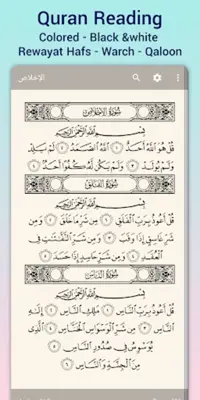 Quran Reading
Colored - Black &white
Rewayat Hafs - Warch - Qaloon
الإخلاص
سُورَةُ الإِخْلَاصِ
بِسْمِ اللَّهِ الرَّحْمَٰنِ الرَّحِيمِ
قُلْ هُوَ اللَّهُ أَحَدٌ ١ اللَّهُ الصَّمَدُ ٢ لَمْ يَلِدْ
وَلَمْ يُولَدْ ٣ وَلَمْ يَكُن لَّهُ كُفُوًا أَحَدٌ ٤
سُورَةُ الْفَلَقِ
بِسْمِ اللَّهِ الرَّحْمَٰنِ الرَّحِيمِ
قُلْ أَعُوذُ بِرَبِّ الْفَلَقِ ١ مِن شَرِّ مَا خَلَقَ ٢ وَمِن
شَرِّ غَاسِقٍ إِذَا وَقَبَ ٣ وَمِن شَرِّ النَّفَّاثَاتِ فِي
الْعُقَدِ ٤ وَمِن شَرِّ حَاسِدٍ إِذَا حَسَدَ ٥
سُورَةُ النَّاسِ
بِسْمِ اللَّهِ الرَّحْمَٰنِ الرَّحِيمِ
قُلْ أَعُوذُ بِرَبِّ النَّاسِ ١ مَلِكِ النَّاسِ ٢ إِلَٰهِ
النَّاسِ ٣ مِن شَرِّ الْوَسْوَاسِ الْخَنَّاسِ ٤ الَّذِي
يُوَسْوِسُ فِي صُدُورِ النَّاسِ ٥
مِنَ الْجِنَّةِ وَالنَّاسِ ٦